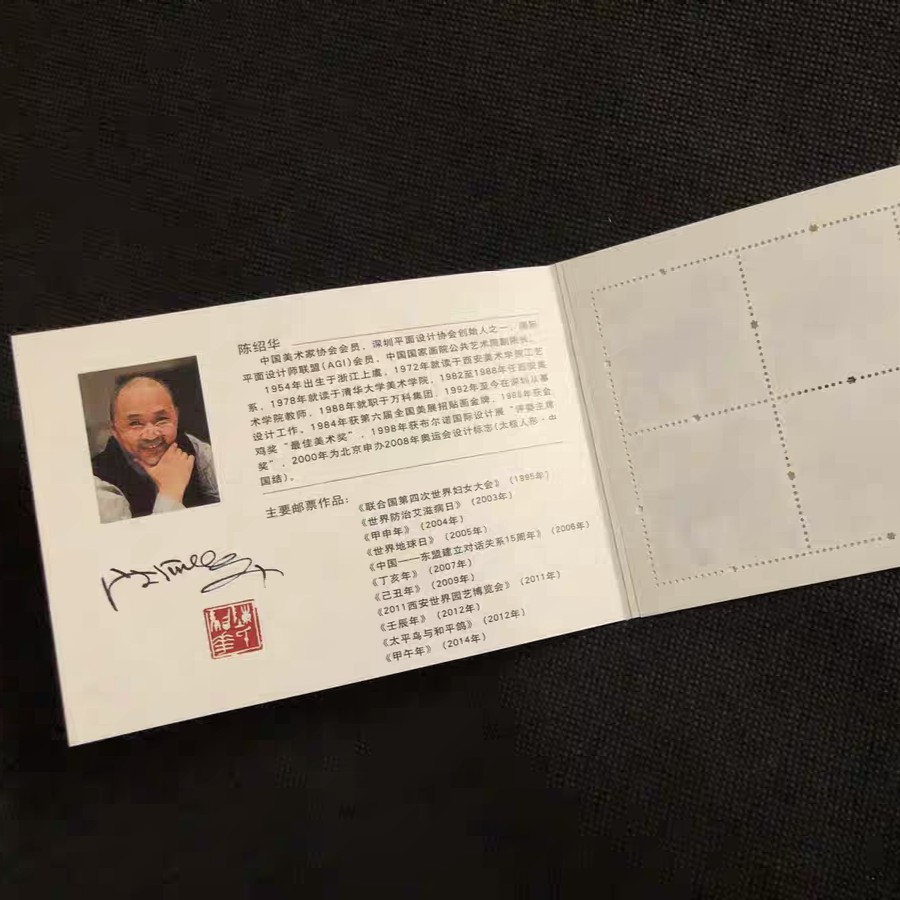 陈绍华
中国美术家协会会员，深圳平面设计协会创始人之一，国际
平面设计师联盟(AGI)会员，中国国家画院公共艺术院副院长。
1954年出生于浙江上虞，1972年就读于西安美术学院工艺
系，1978年就读于清华大学美术学院，1982至1988年任西安美
术学院教师，1988年就职于万科集团，1992年至今在深圳从事
设计工作。1984年获第六届全国美展招贴画金牌，1988年获金
鸡奖“最佳美术奖”，1998年获布尔诺国际设计展“评委主席
奖”，2000年为北京申办2008年奥运会设计标志(太极人形·中
国结)。
主要邮票作品：
《联合国第四次世界妇女大会》（1995年）
《世界防治艾滋病日》（2003年）
《甲申年》（2004年）
《世界地球日》（2005年）
《中国——东盟建立对话关系15周年》（2006年）
《丁亥年》（2007年）
《己丑年》（2009年）
《2011西安世界园艺博览会》（2011年）
《壬辰年》（2012年）
《太平鸟与和平鸽》（2012年）
《甲午年》（2014年）